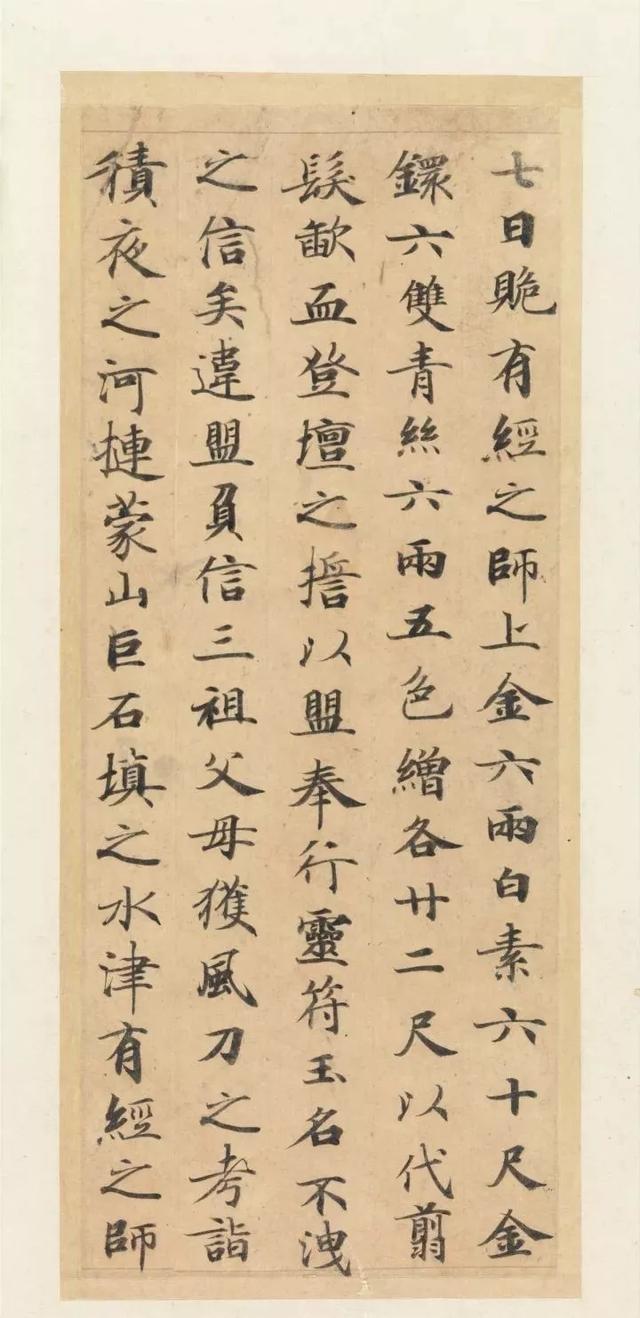 七日跪有經之師上金六兩白素六十尺金
鐶六雙青絲六兩五色繒各廿二尺以代翦
髮歃血登壇之擔以盟奉行靈符玉名不洩
之信矣違盟負信三祖父母獲風刀之考詣
積夜之河摙蒙山巨石填之水津有經之師